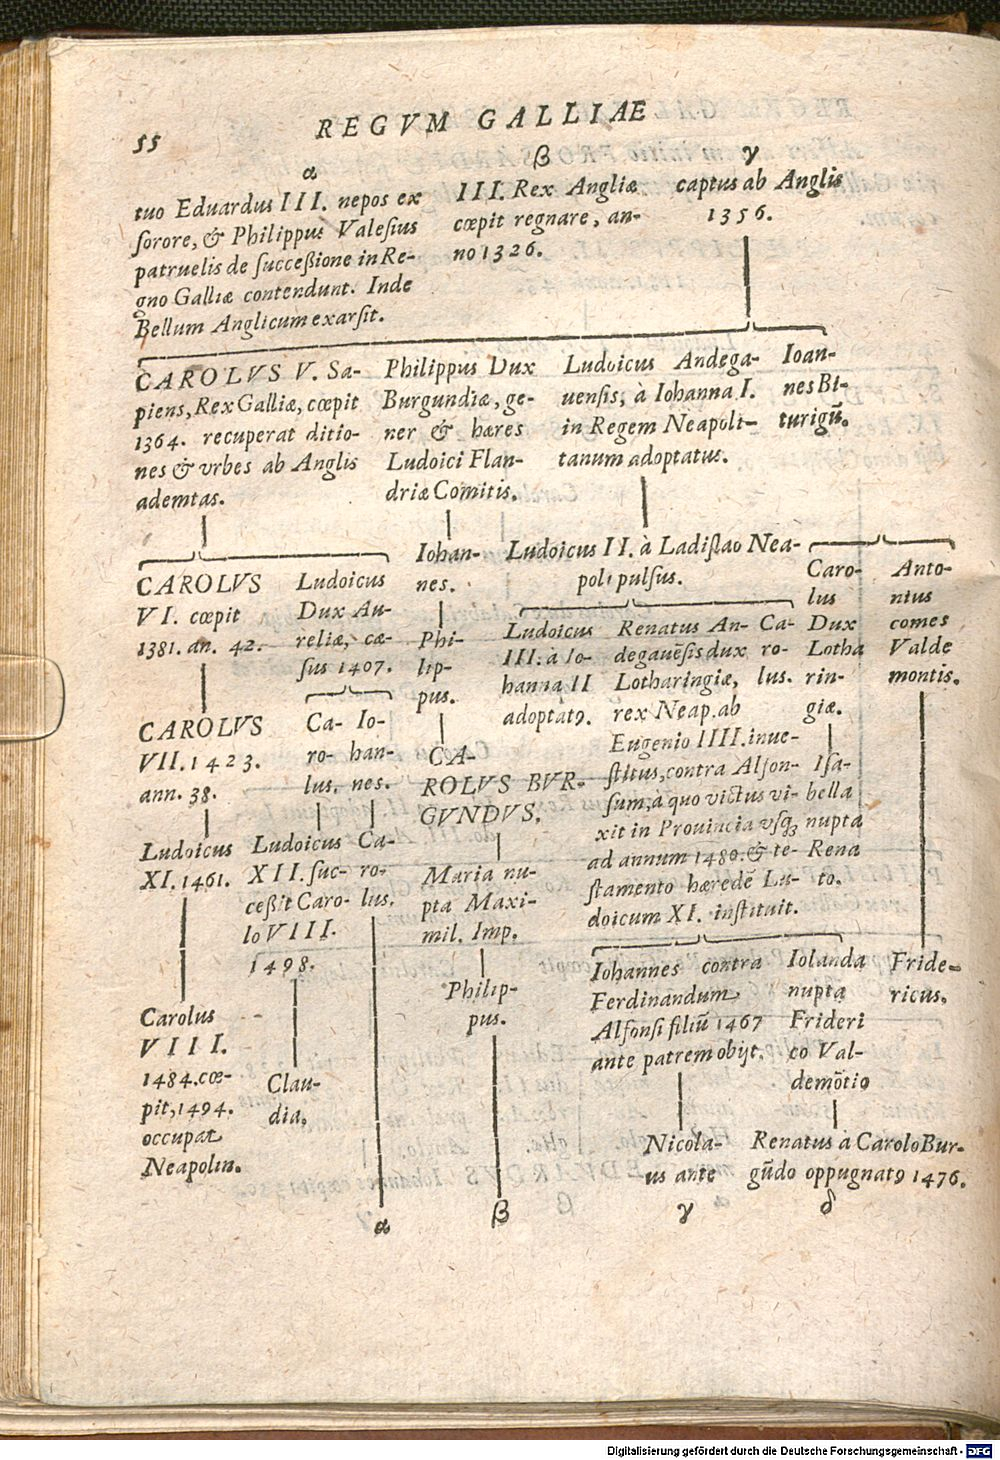 55
REGVM GALLIAE
α
tuo Eduardus III. nepos ex
sorore, & Philippus Valesius
patruelis de succeßione in Re-
gno Galliæ contendunt. Inde
Bellum Anglicum exarsit.
β
III. Rex Angliæ
cœpit regnare, an-
no 1326.
γ
captus ab Anglis
1356.
CAROLVS V. Sa-
piens, Rex Galliæ, cœpit
1364. recuperat ditio-
nes & vrbes ab Anglis
ademtas.
Philippus Dux
Burgundiæ, ge-
ner & hæres
Ludoici Flan-
driæ Comitis.
Ludoicus Andega-
uensis, à Iohanna I.
in Regem Neapoli-
tanum adoptatus.
Ioan-
nes Bi-
turigũ.
CAROLVS
VI. cœpit
1381. an. 42.
Ludoicus
Dux Au-
reliæ, cæ-
sus 1407.
Iohan-
nes.
Ludoicus II. à Ladislao Nea-
poli pulsus.
Caro-
lus
Dux
Lotha
rin-
giæ.
Anto-
nius
comes
Valde
montis.
Phi-
lip-
pus.
Ludoicus
III. à Io-
hanna II
adoptatꝰ.
Renatus An-
degauẽsis dux
Lotharingiæ,
rex Neap. ab
Eugenio IIII. inue-
stitus, contra Alfon-
sum, à quo victus vi-
xit in Prouincia vsq;
ad annum 1480. & te-
stamento hæredẽ Lu-
doicum XI. instituit.
Ca-
ro-
lus.
CAROLVS
VII. 1423.
ann. 38.
Ca-
ro-
lus.
Io-
han-
nes.
CA-
ROLVS BVR-
GVNDVS.
Isa-
bella
nupta
Rena
to.
Ludoicus
XI. 1461.
Ludoicus
XII. suc-
ceßit Caro-
lo VIII.
1498.
Ca-
ro-
lus.
Maria nu-
pta Maxi-
mil. Imp.
Philip-
pus.
Iohannes contra
Ferdinandum
Alfonsi filiũ 1467
ante patrem obijt.
Iolanda
nupta
Frideri
co Val-
demõtiꝰ
Fride-
ricus.
Carolus
VIII.
1484. cœ-
pit, 1494.
occupat
Neapolin.
Clau-
dia.
Nicola-
us ante
Renatus à Carolo Bur-
gũdo oppugnatꝰ 1476.
α
β
γ
δ
Digitalisierung gefördert durch die Deutsche Forschungsgemeinschaft - DFG